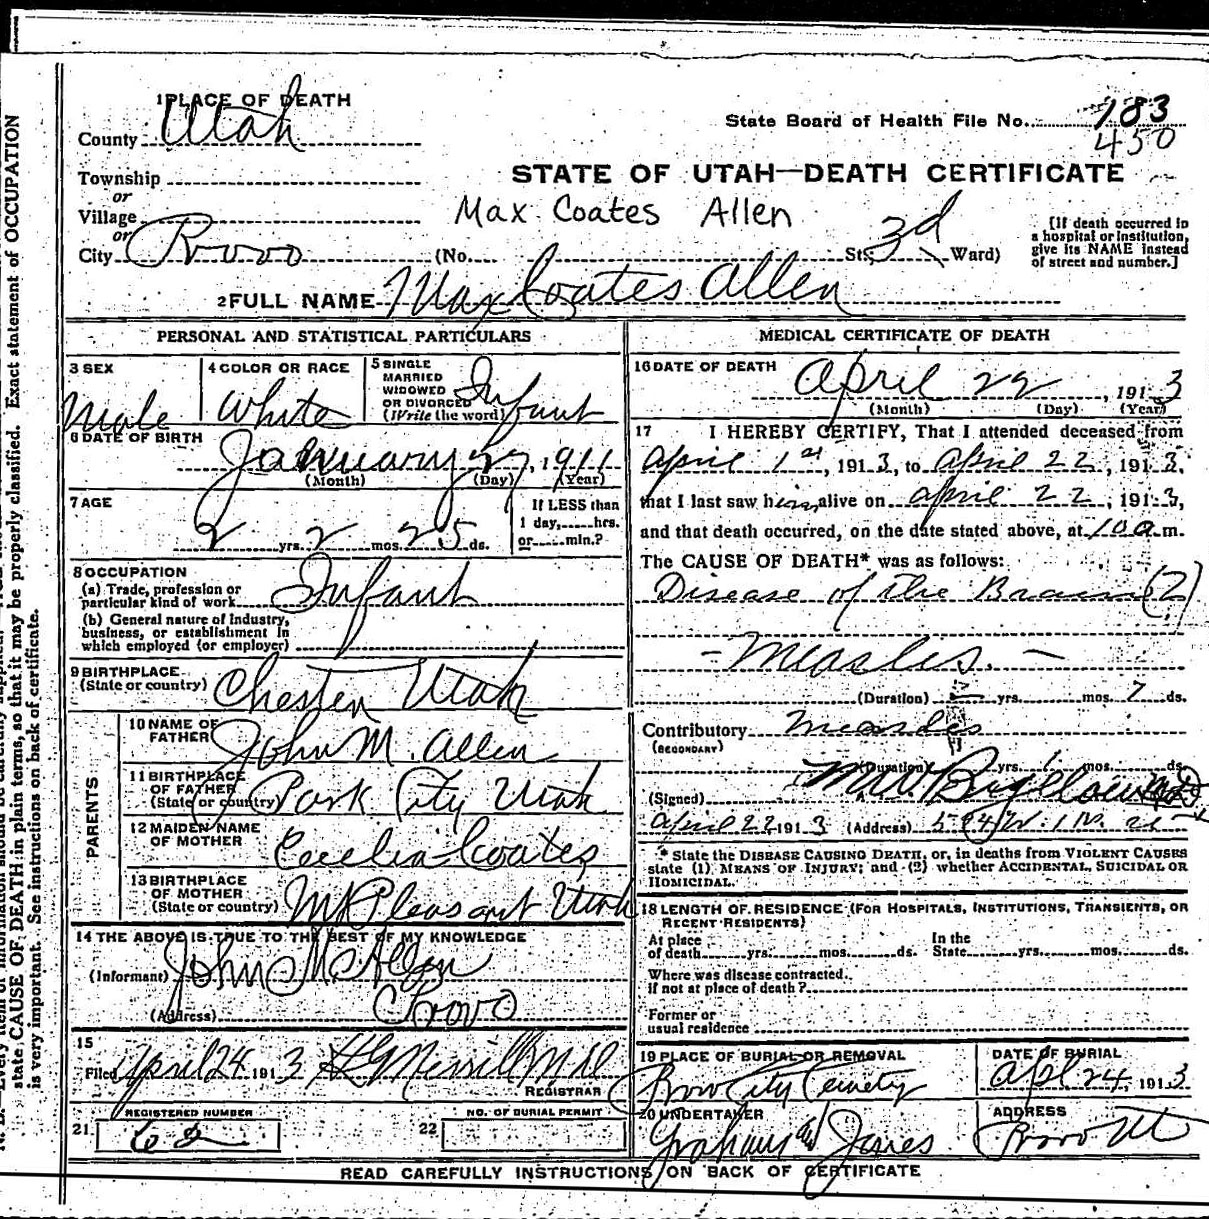 1 PLACE OF DEATH
County Utah
State Board of Health File No. 183
450
Township
or
Village
or
City Provo (No. St; 3d Ward)
STATE OF UTAH—DEATH CERTIFICATE
Max Coates Allen
[If death occurred in
a hospital or institution,
give its NAME instead
of street and number.]
2 FULL NAME Max Coates Allen
PERSONAL AND STATISTICAL PARTICULARS
3 SEX
Male
4 COLOR OR RACE
White
5 SINGLE
MARRIED
WIDOWED
OR DIVORCED
(Write the word) Infant
6 DATE OF BIRTH
January 27, 1911
(Month) (Day) (Year)
7 AGE
2 yrs. 2 mos. 25 ds.
If LESS than
1 day, hrs.
or min.?
8 OCCUPATION
(a) Trade, profession or
particular kind of work Infant
(b) General nature of Industry,
business, or establishment in
which employed (or employer)
9 BIRTHPLACE
(State or country) Chester Utah
PARENTS
10 NAME OF
FATHER John M. Allen
11 BIRTHPLACE
OF FATHER
(State or country) Park City Utah
12 MAIDEN NAME
OF MOTHER Cecelia Coates
13 BIRTHPLACE
OF MOTHER
(State or country) Mt Pleasant Utah
14 THE ABOVE IS TRUE TO THE BEST OF MY KNOWLEDGE
(Informant) John M Allen
(Address) Provo
15
Filed April 24 1913 Merrill MD
REGISTRAR
REGISTERED NUMBER
21 62
NO. OF BURIAL PERMIT
22
MEDICAL CERTIFICATE OF DEATH
16 DATE OF DEATH
April 22, 1913
(Month) (Day) (Year)
17 I HEREBY CERTIFY, That I attended deceased from
April 1st, 1913, to April 22, 1913,
that I last saw him alive on April 22, 1913,
and that death occurred, on the date stated above, at 10 a. m.
The CAUSE OF DEATH* was as follows:
Disease of the Brain (?)
- Measles. -
(Duration) yrs. mos. 7 ds.
Contributory measles
(SECONDARY)
(Duration) yrs. mos. ds.
(Signed) Bigelow MD
April 22 1913 (Address)
* State the DISEASE CAUSING DEATH, or, in deaths from VIOLENT CAUSES
state (1) MEANS OF INJURY; and (2) whether ACCIDENTAL, SUICIDAL OR
HOMICIDAL.
18 LENGTH OF RESIDENCE (FOR HOSPITALS, INSTITUTIONS, TRANSIENTS, OR
RECENT RESIDENTS)
At place
of death yrs. mos. ds.
In the
State yrs. mos. ds.
Where was disease contracted.
If not at place of death?
Former or
usual residence
19 PLACE OF BURIAL OR REMOVAL
Provo City Cemetery
DATE OF BURIAL
Apl 24, 1913
20 UNDERTAKER
Graham Jones
ADDRESS
Provo Ut
READ CAREFULLY INSTRUCTIONS ON BACK OF CERTIFICATE
state CAUSE OF DEATH in plain terms, so that it may be properly classified. Exact statement of OCCUPATION
is very important. See instructions on back of certificate.